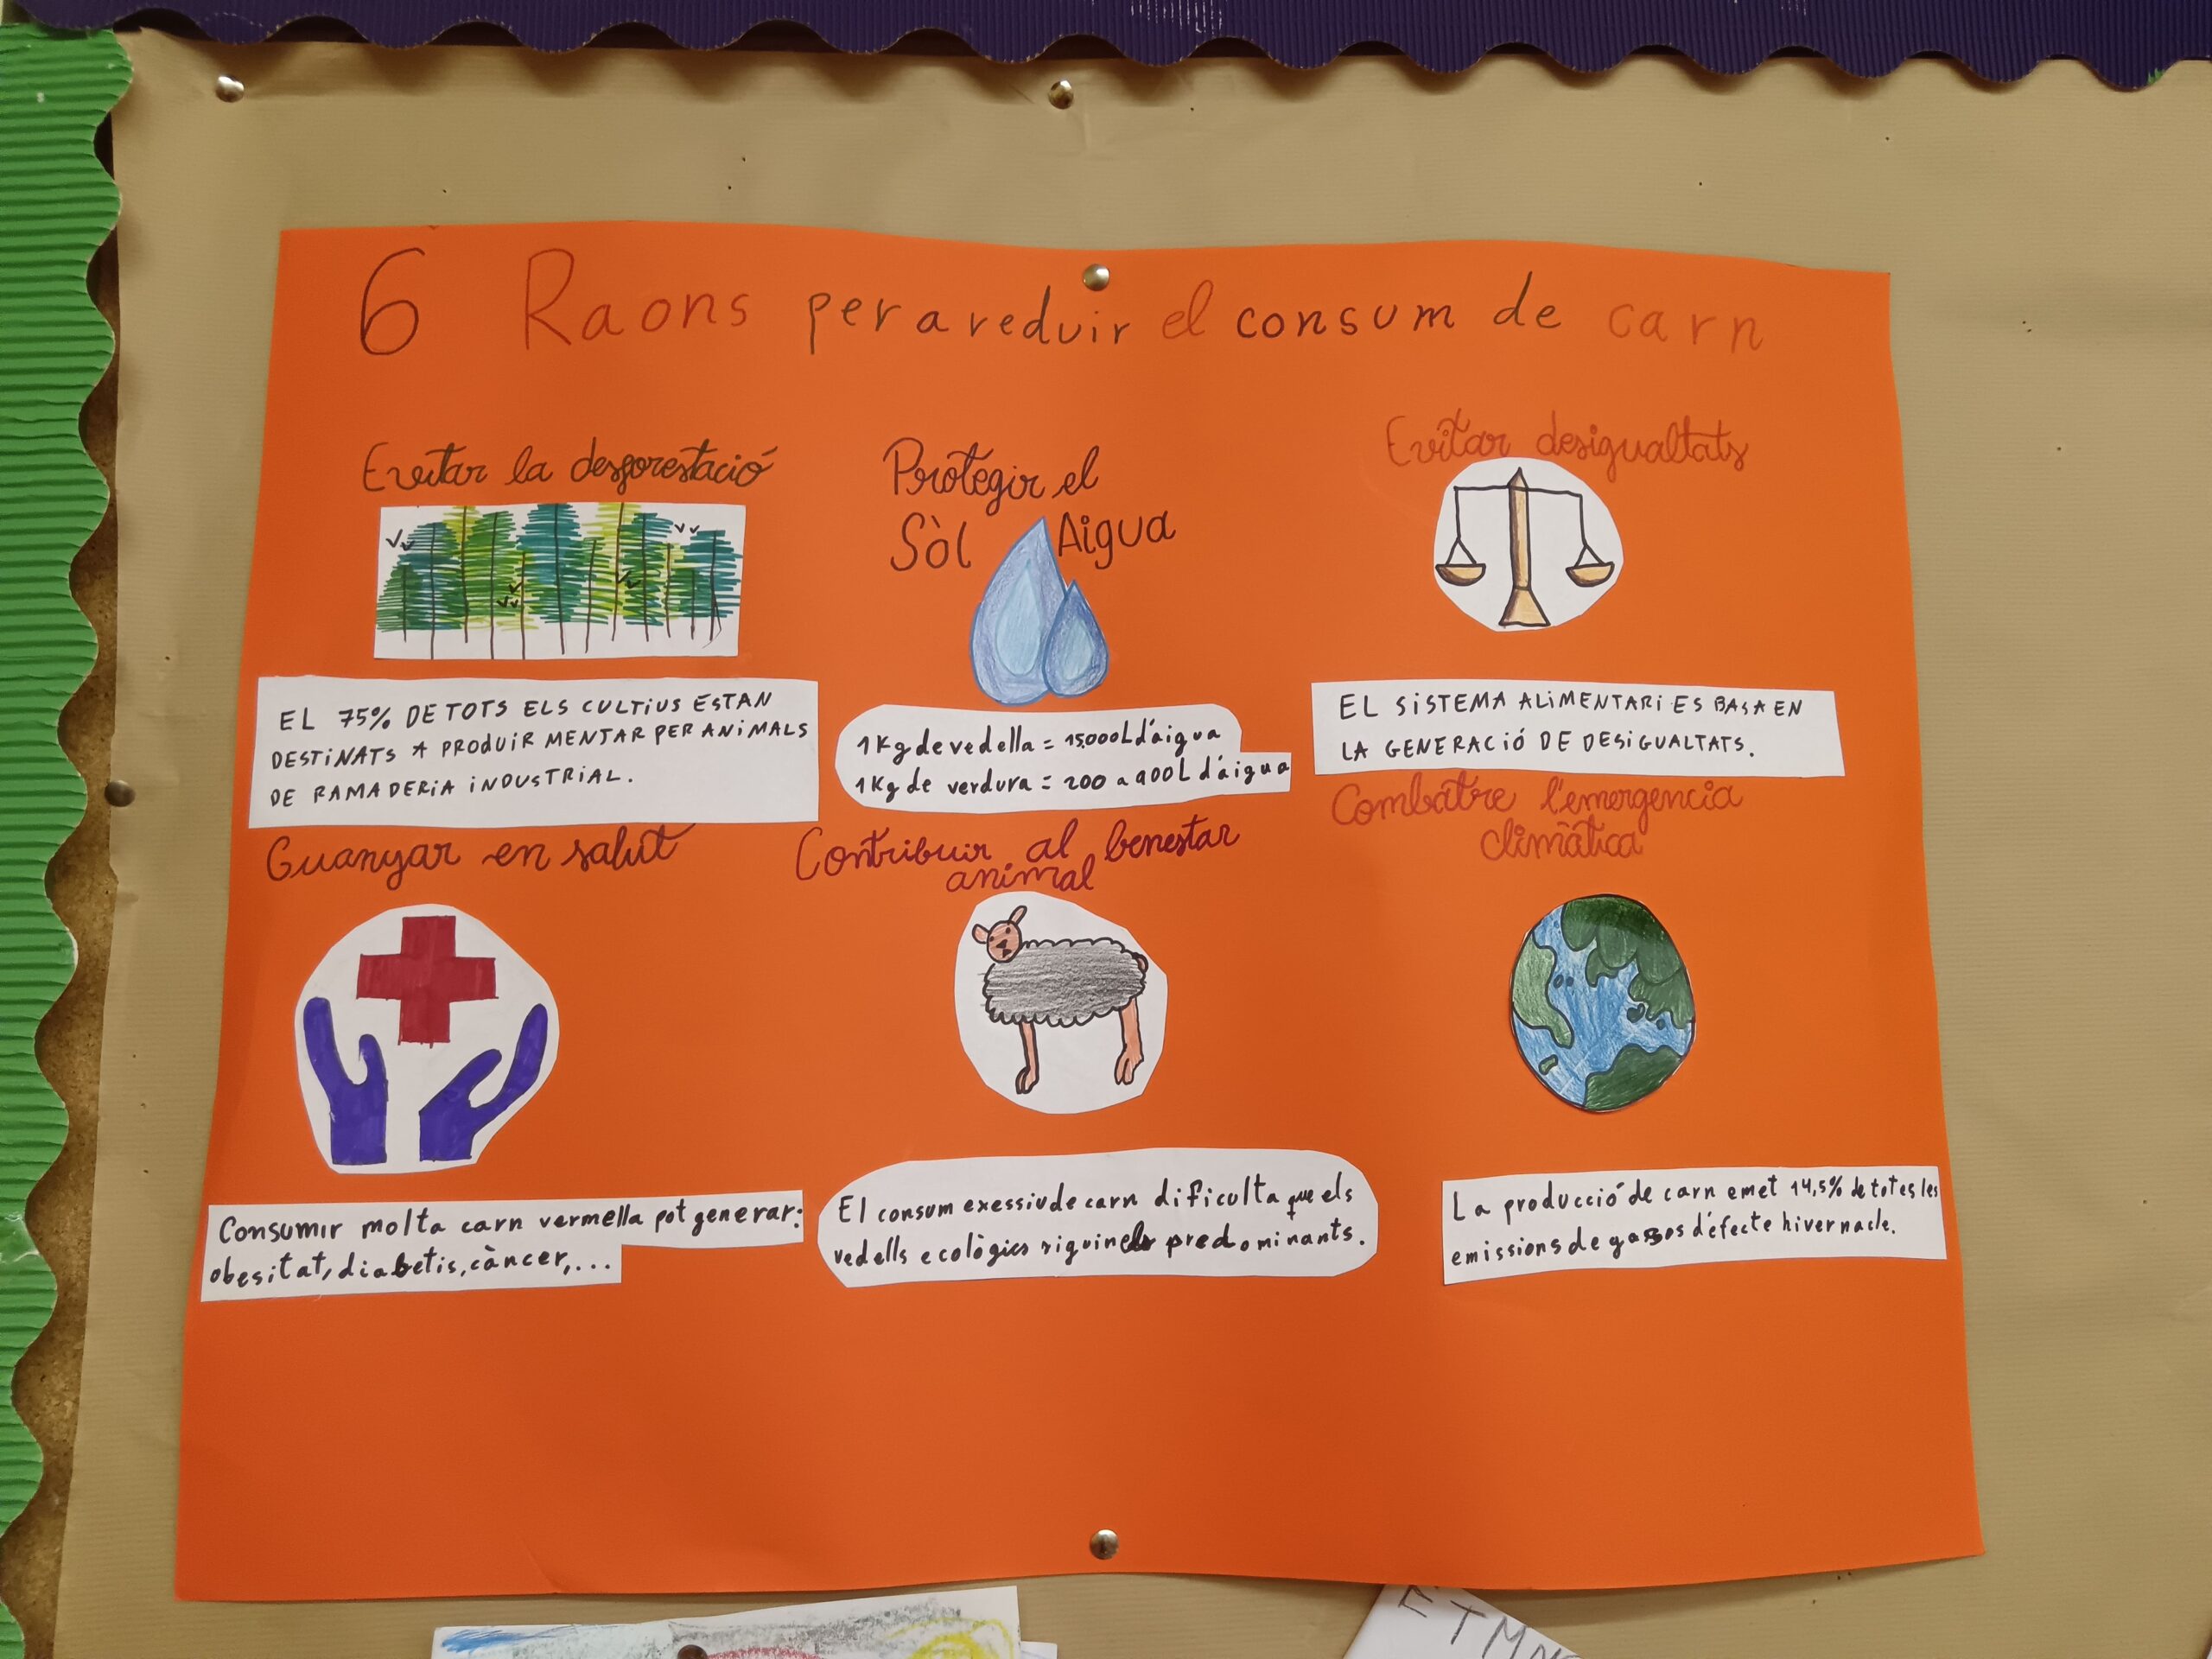 6 Raons per a reduir el consum de carn
Evitar la desforestació
EL 75% DE TOTS ELS CULTIUS ESTAN
DESTINATS A PRODUIR MENJAR PER ANIMALS
DE RAMADERIA INDUSTRIAL.
Protegir el
Sòl Aigua
1 Kg de vedella = 15,000L d'aigua
1 Kg de verdura = 200 a 900L d'aigua
Evitar desigualtats
EL SISTEMA ALIMENTARI ES BASA EN
LA GENERACIÓ DE DESIGUALTATS.
Guanyar en salut
Consumir molta carn vermella pot generar:
obesitat, diabetis, càncer,...
Contribuir al benestar
animal
El consum exessiu de carn dificulta que els
vedells ecològics siguin els predominants.
Combatre l'emergencia
climàtica
La producció de carn emet 14,5% de totes les
emissions de gasos d'efecte hivernacle.